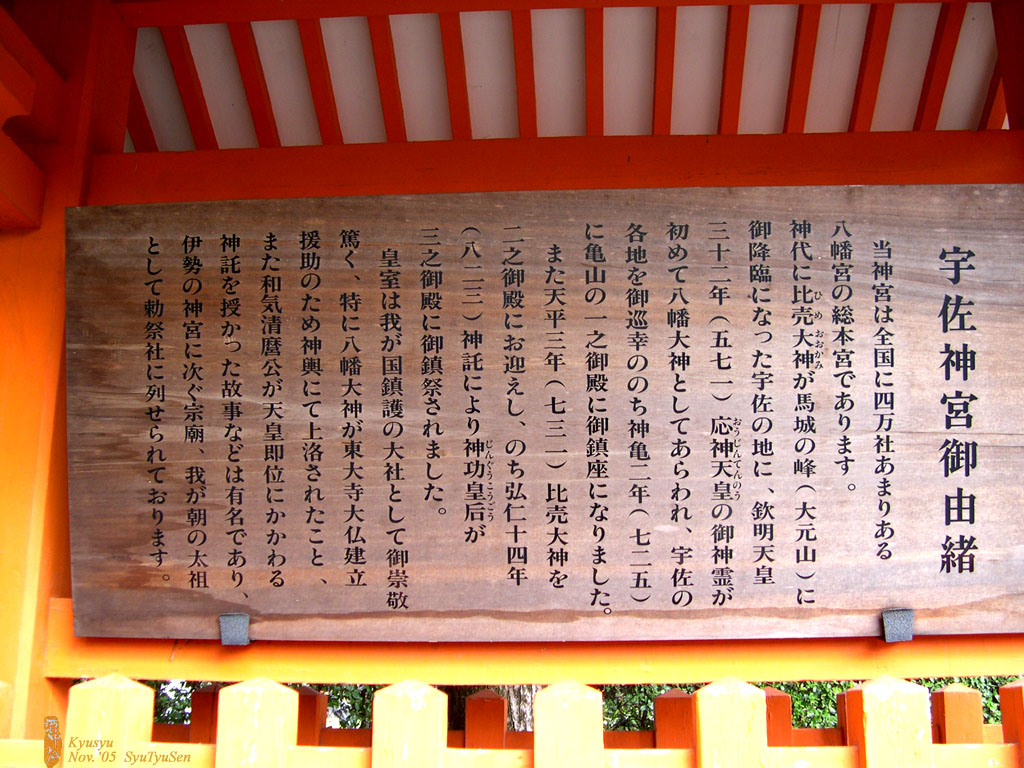 宇佐神宮御由緒
当神宮は全国に四万社あまりある
八幡宮の総本宮であります。
神代に比売大神が馬城の峰(大元山)に
ひめおおかみ
御降臨になった宇佐の地に、欽明天皇
三十二年(五七一)応神天皇の御神霊が
おうじんてんのう
初めて八幡大神としてあらわれ、宇佐の
各地を御巡幸ののち神亀二年(七二五)
に亀山の一之御殿に御鎮座になりました。
また天平三年(七三一)比売大神を
二之御殿にお迎えし、のち弘仁十四年
(八二三)神託により神功皇后が
じんぐうこうごう
三之御殿に御鎮祭されました。
皇室は我が国鎮護の大社として御崇敬
篤く、特に八幡大神が東大寺大仏建立
援助のため神輿にて上洛されたこと、
また和気清麿公が天皇即位にかかわる
神託を授かった故事などは有名であり、
伊勢の神宮に次ぐ宗廟、我が朝の太祖
として勅祭社に列せられております。
Kyusyu
Nov.'05 SyuTyuSen